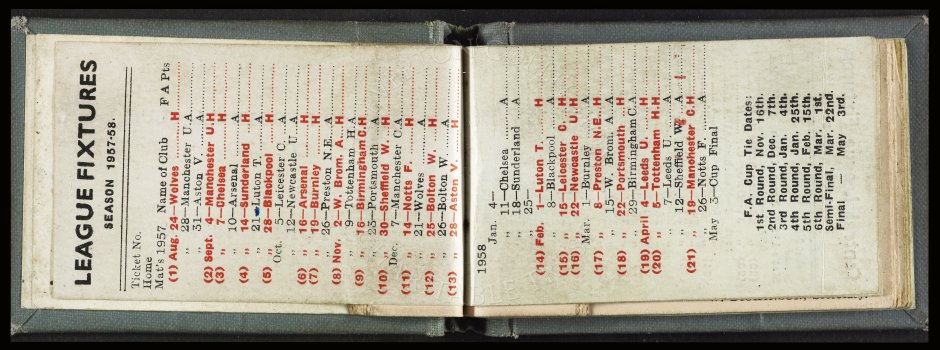 LEAGUE FIXTURES
SEASON 1957-58.
Ticket No.
Home
Mat's 1957 Name of Club F A Pts
(1) Aug. 24—Wolves H
„ 28—Manchester U. A
„ 31—Aston V. A
(2) Sept. 4—Manchester U. H
(3) „ 7—Chelsea H
„ 10—Arsenal A
(4) „ 14—Sunderland H
„ 21—Luton T. A
(5) „ 28—Blackpool H
Oct. 5—Leicester C. A
„ 12—Newcastle U. A
(6) „ 16—Arsenal H
(7) „ 19—Burnley H
„ 26—Preston N.E. A
(8) Nov. 2—W. Brom. A. H
„ 9—Tottenham H. A
(9) „ 16—Birmingham C. H
„ 23—Portsmouth A
(10) „ 30—Sheffield W. H
Dec. 7—Manchester C. A
(11) „ 14—Notts F. H
„ 21—Wolves A
(12) „ 25—Bolton W. H
„ 26—Bolton W. A
(13) „ 28—Aston V. H
1958
Jan. 14—
„ 11—Chelsea A
„ 18—Sunderland A
„ 25—
(14) Feb. 1—Luton T. H
„ 8—Blackpool A
(15) „ 15—Leicester C. H
(16) „ 22—Newcastle U. H
Mar. 1—Burnley A
(17) „ 8—Preston N.E. H
„ 15—W. Brom. A. A
(18) „ 22—Portsmouth H
„ 29—Birmingham C. A
(19) April 4—Leeds U. H
(20) „ 5—Tottenham H. H
„ 7—Leeds U. A
„ 12—Sheffield W. A
(21) „ 19—Manchester C. H
„ 26—Notts F. A
May 3—Cup Final
F.A. Cup Tie Dates:
1st Round, Nov. 16th.
2nd Round, Dec. 7th.
3rd Round, Jan. 4th.
4th Round, Jan. 25th.
5th Round, Feb. 15th.
6th Round, Mar. 1st.
Semi-Final, Mar. 22nd.
Final — May 3rd.